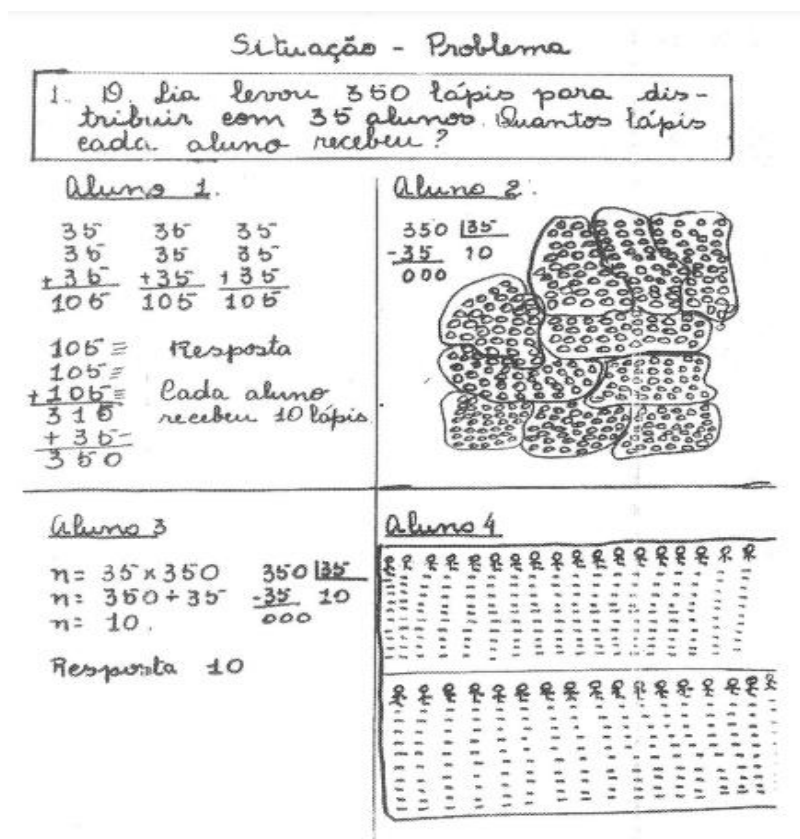 Situação - Problema
1. D. Lia levou 350 lápis para dis-
tribuir com 35 alunos. Quantos lápis
cada aluno recebeu?
Aluno 1.
35 35 35
35 35 35
+35 +35 +35
105 105 105
105 = Resposta
105 =
+105 = Cada aluno
315 recebeu 10 lápis
+ 35 -
350
Aluno 2.
350 |35
-35 10
000
Aluno 3
n= 35 x 350 350 |35
n= 350 ÷ 35 -35 10
n= 10. 000
Resposta 10
Aluno 4